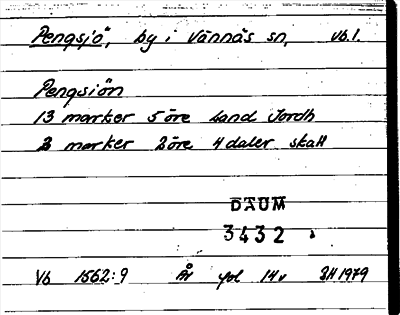 Pengsjö, by i Vännäs sn, Vb.l.
Pengsiön
13 marker 5 öre Land Jordh
2 marker 2 öre 4 daler skatt
DAUM
3432
Vb 1562:9 År fol 14v SH 1979